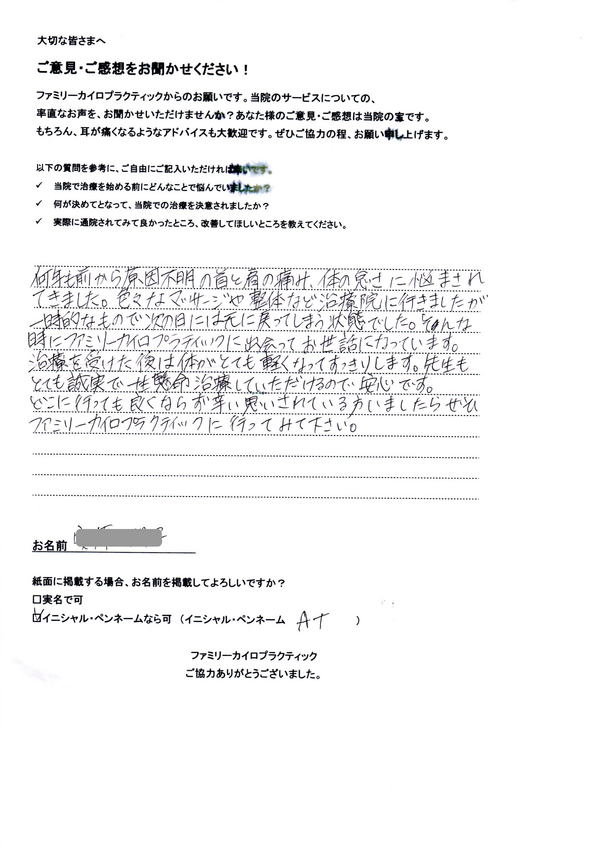 大切な皆さまへ
ご意見・ご感想をお聞かせください！
ファミリーカイロプラクティックからのお願いです。当院のサービスについての、
率直なお声を、お聞かせいただけませんか？あなた様のご意見・ご感想は当院の宝です。
もちろん、耳が痛くなるようなアドバイスも大歓迎です。ぜひご協力の程、お願い申し上げます。
以下の質問を参考に、ご自由にご記入いただければ幸いです。
✓ 当院で治療を始める前にどんなことで悩んでいましたか？
✓ 何が決めてとなって、当院での治療を決意されましたか？
✓ 実際に通院されてみて良かったところ、改善してほしいところを教えてください。
何年も前から原因不明の首と肩の痛み、体の怠さに悩まされ
てきました。色々なマッサージや整体など治療院に行きましたが
一時的なもので次の日には元に戻ってしまう状態でした。そんな
時にファミリーカイロプラティックに出会ってお世話になっています。
治療を受けた後は体がとても軽くなってすっきりします。先生も
とても誠実で一生懸命治療していただけるので安心です。
どこに行っても良くならず辛い思いされている方いましたらぜひ
ファミリーカイロプラクティックに行ってみて下さい。
お名前
紙面に掲載する場合、お名前を掲載してよろしいですか？
□実名で可
☑イニシャル・ペンネームなら可 （イニシャル・ペンネーム AT ）
ファミリーカイロプラクティック
ご協力ありがとうございました。